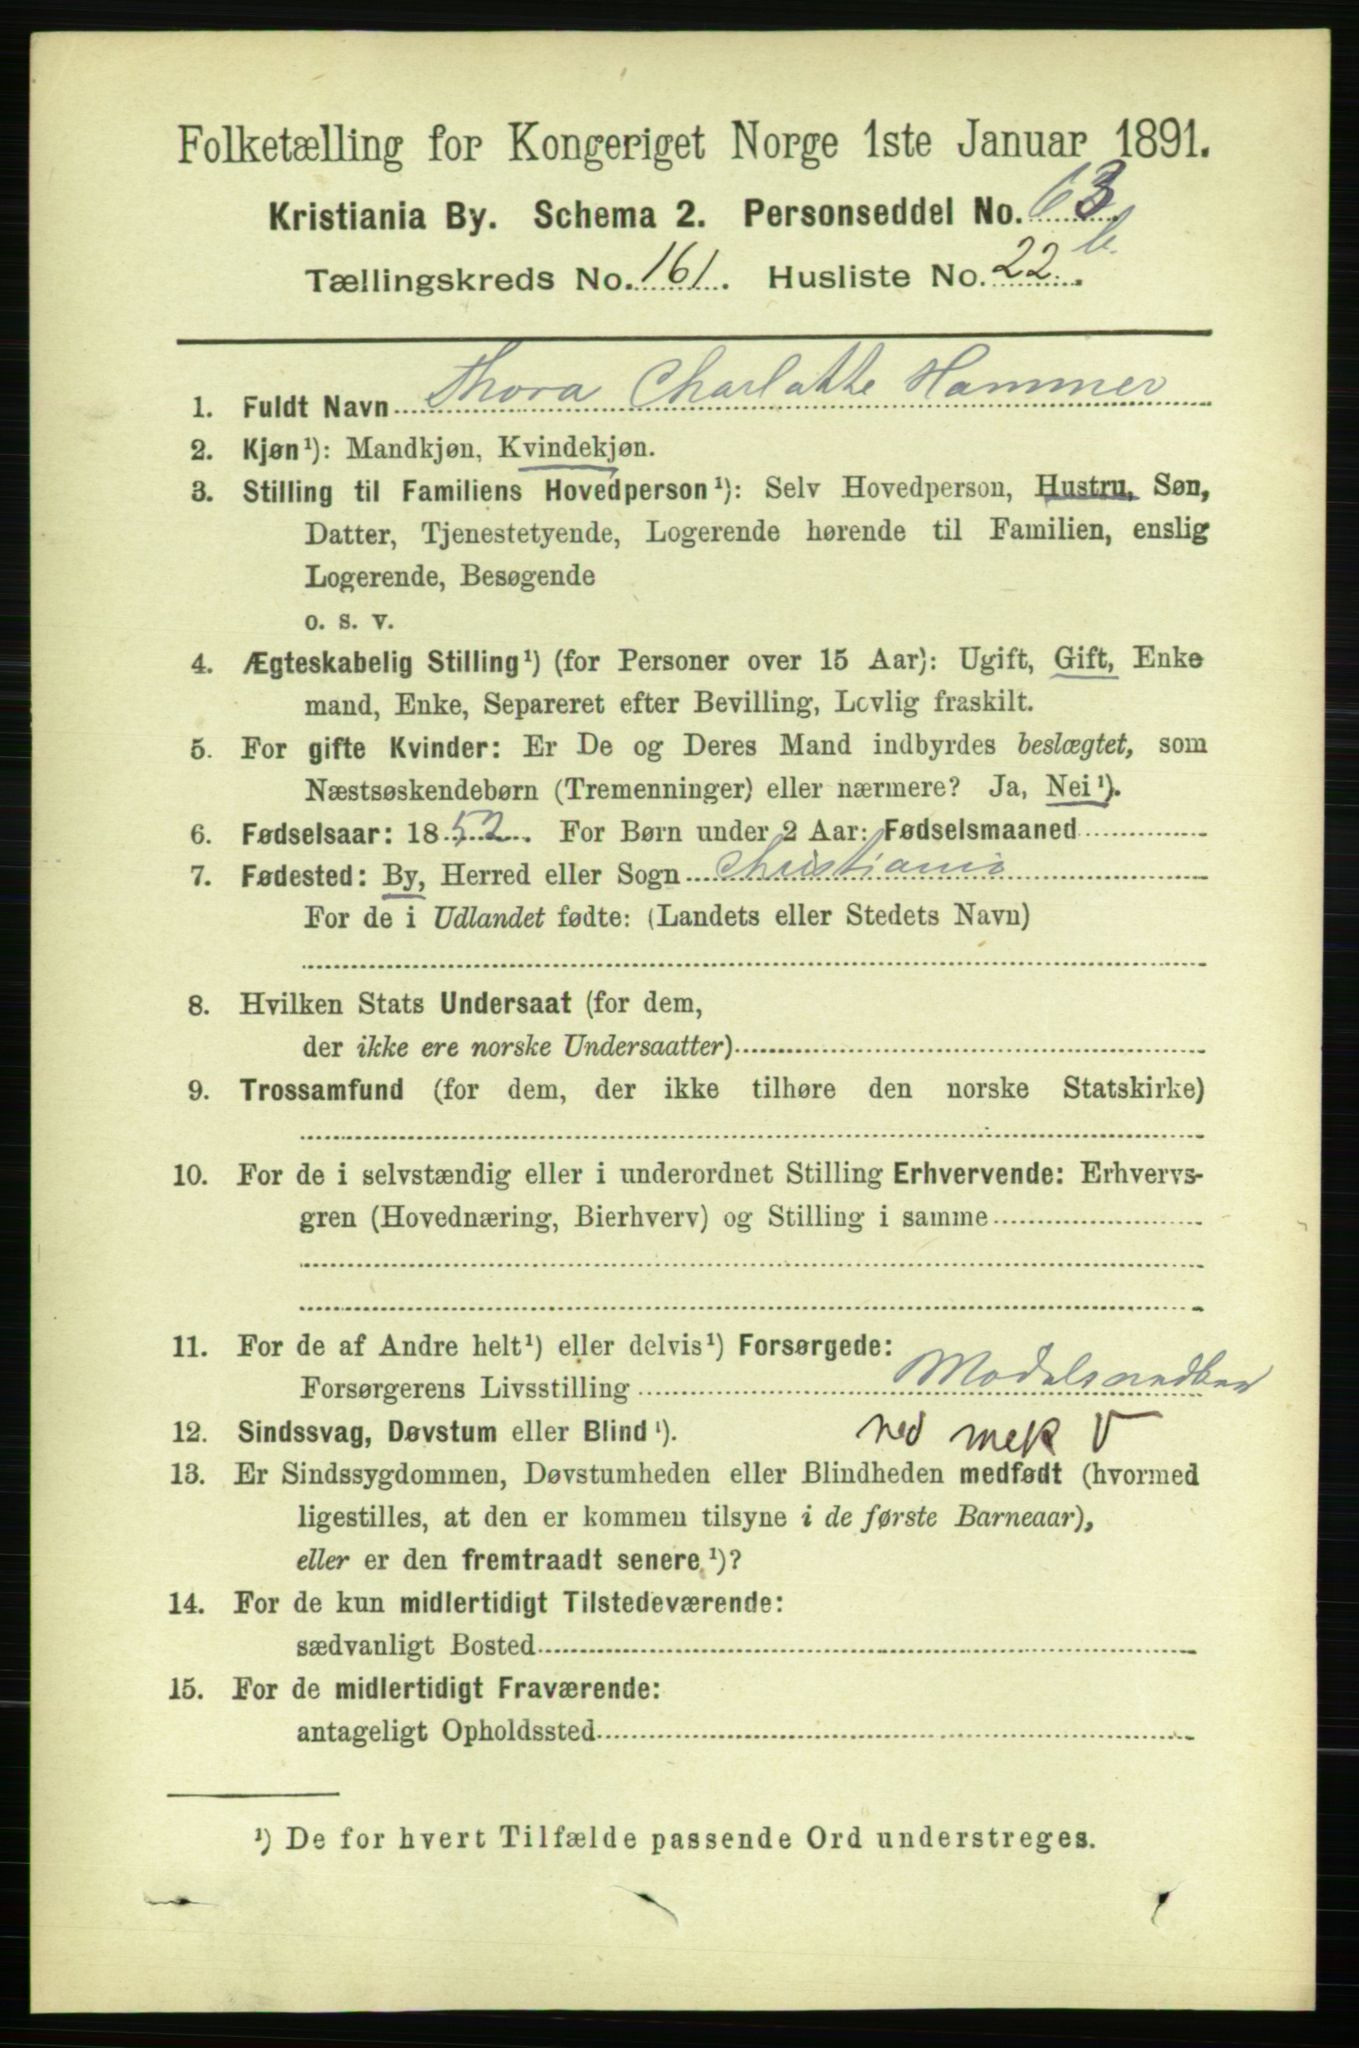 Folketælling for Kongeriget Norge 1ste Januar 1891.
Kristiania By. Schema 2. Personseddel No. 63.
Tællingskreds No. 161. Husliste No. 22 b.
1. Fuldt Navn Thora Charlotte Hammer
2. Kjøn¹): Mandkjøn, Kvindekjøn.
3. Stilling til Familiens Hovedperson¹): Selv Hovedperson, Hustru, Søn,
Datter, Tjenestetyende, Logerende hørende til Familien, enslig
Logerende, Besøgende
o. s. v.
4. Ægteskabelig Stilling¹) (for Personer over 15 Aar): Ugift, Gift, Enke
mand, Enke, Separeret efter Bevilling, Lovlig fraskilt.
5. For gifte Kvinder: Er De og Deres Mand indbyrdes beslægtet, som
Næstsøskendebørn (Tremenninger) eller nærmere? Ja, Nei¹).
6. Fødselsaar: 1852. For Børn under 2 Aar: Fødselsmaaned
7. Fødested: By, Herred eller Sogn Christiania
For de i Udlandet fødte: (Landets eller Stedets Navn)
8. Hvilken Stats Undersaat (for dem,
der ikke ere norske Undersaatter)
9. Trossamfund (for dem, der ikke tilhøre den norske Statskirke)
10. For de i selvstændig eller i underordnet Stilling Erhvervende: Erhvervs-
gren (Hovednæring, Bierhverv) og Stilling i samme
11. For de af Andre helt¹) eller delvis¹) Forsørgede:
Forsørgerens Livsstilling Modelsnedker
12. Sindssvag, Døvstum eller Blind¹). ned mek V
13. Er Sindssygdommen, Døvstumheden eller Blindheden medfødt (hvormed
ligestilles, at den er kommen tilsyne i de første Barneaar),
eller er den fremtraadt senere¹)?
14. For de kun midlertidigt Tilstedeværende:
sædvanligt Bosted
15. For de midlertidigt Fraværende:
antageligt Opholdssted
¹) De for hvert Tilfælde passende Ord understreges.